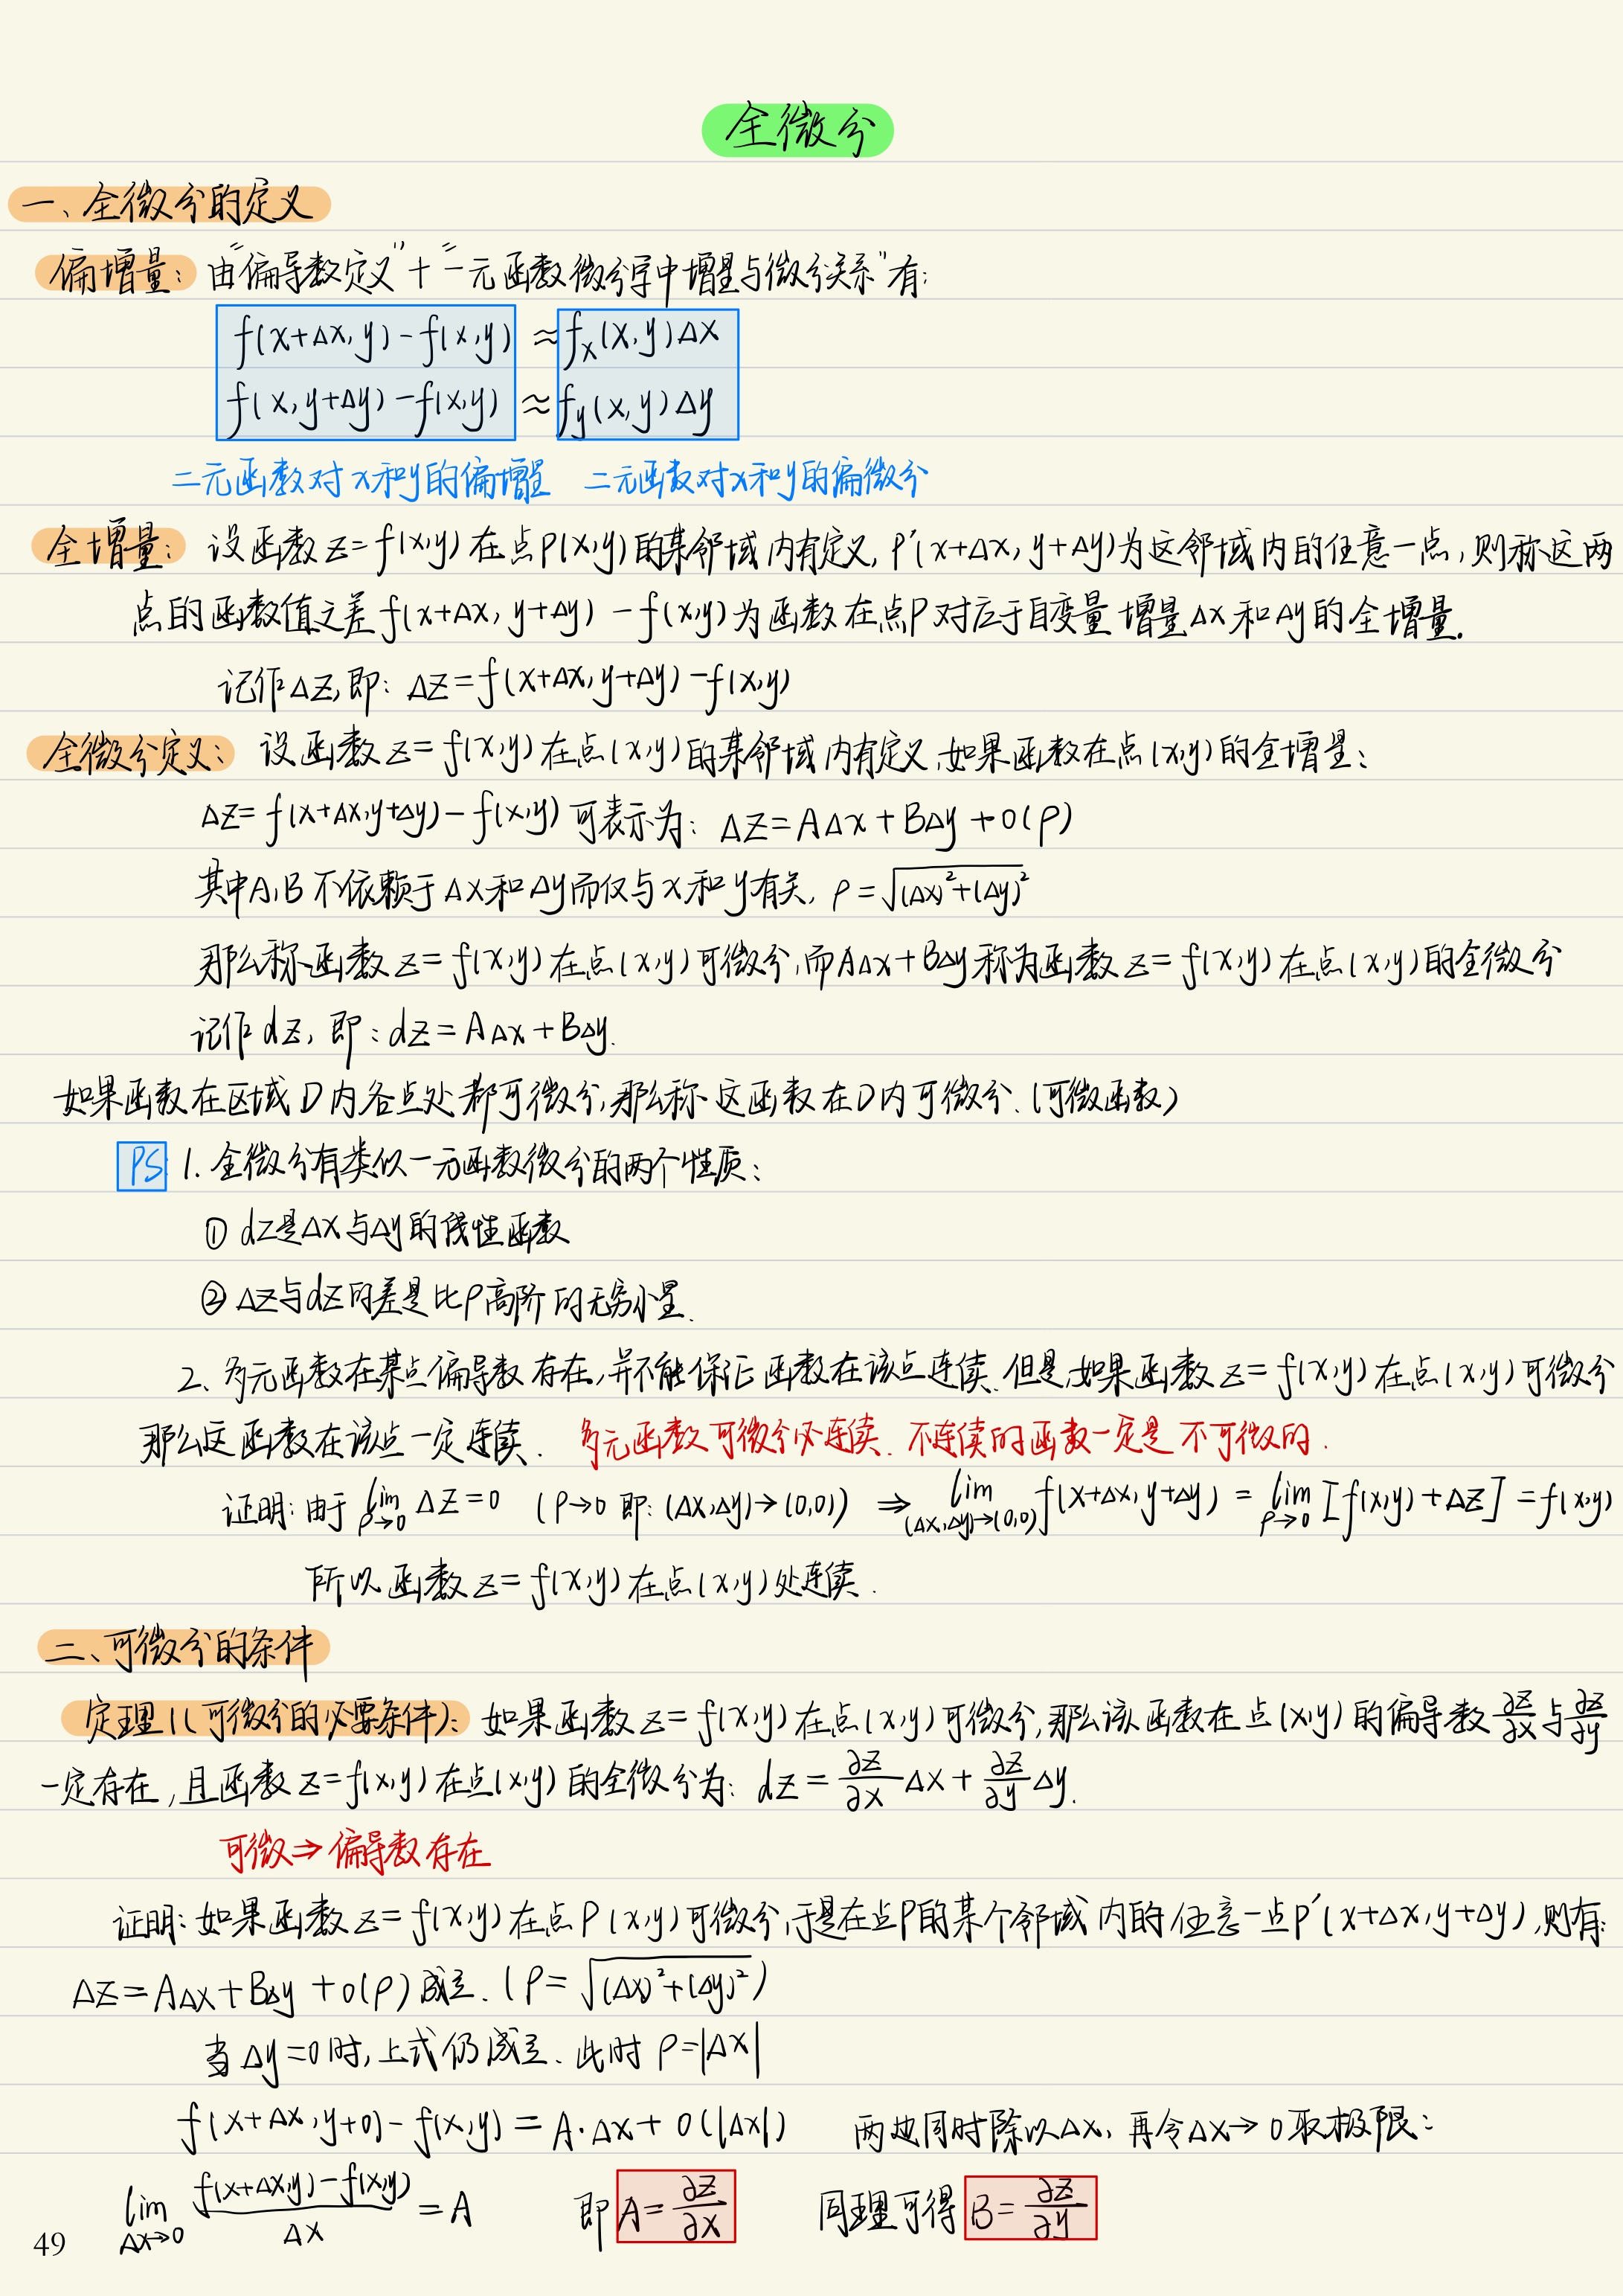 全微分
一、全微分的定义
偏增量：由“偏导数定义”+“一元函数微分学中增量与微分关系”有：
f(x+Δx, y)-f(x,y) ≈ fₓ(x,y)Δx
f(x, y+Δy)-f(x,y) ≈ f_y(x,y)Δy
二元函数对x和y的偏增量 二元函数对x和y的偏微分
全增量：设函数z=f(x,y)在点P(x,y)的某邻域内有定义,P'(x+Δx, y+Δy)为这邻域内的任意一点,则称这两
点的函数值之差f(x+Δx, y+Δy)-f(x,y)为函数在点P对应于自变量增量Δx和Δy的全增量.
记作Δz,即：Δz=f(x+Δx,y+Δy)-f(x,y)
全微分定义：设函数z=f(x,y)在点(x,y)的某邻域内有定义,如果函数在点(x,y)的全增量：
Δz=f(x+Δx,y+Δy)-f(x,y)可表示为：Δz=AΔx+BΔy+o(ρ)
其中A,B不依赖于Δx和Δy而仅与x和y有关, ρ=√((Δx)²+(Δy)²)
那么称函数z=f(x,y)在点(x,y)可微分,而AΔx+BΔy称为函数z=f(x,y)在点(x,y)的全微分
记作dz, 即：dz=AΔx+BΔy.
如果函数在区域D内各点处都可微分,那么称这函数在D内可微分.(可微函数)
PS 1. 全微分有类似一元函数微分的两个性质：
① dz是Δx与Δy的线性函数
② Δz与dz的差是比ρ高阶的无穷小量.
2、多元函数在某点偏导数存在,并不能保证函数在该点连续.但是,如果函数z=f(x,y)在点(x,y)可微分
那么这函数在该点一定连续. 多元函数可微分必连续. 不连续的函数一定是不可微的.
证明：由于 lim_{ρ→0} Δz=0 (ρ→0 即：(Δx,Δy)→(0,0)) ⇒ lim_{(Δx,Δy)→(0,0)} f(x+Δx, y+Δy) = lim_{ρ→0} [f(x,y)+Δz] = f(x,y)
所以函数z=f(x,y)在点(x,y)处连续.
二、可微分的条件
定理1(可微分的必要条件)：如果函数z=f(x,y)在点(x,y)可微分,那么该函数在点(x,y)的偏导数∂z/∂x与∂z/∂y
一定存在,且函数z=f(x,y)在点(x,y)的全微分为：dz=∂z/∂x Δx+∂z/∂y Δy.
可微⇒偏导数存在
证明：如果函数z=f(x,y)在点P(x,y)可微分,于是在点P的某个邻域内的任意一点P'(x+Δx,y+Δy),则有：
Δz=AΔx+BΔy+o(ρ)成立.(ρ=√((Δx)²+(Δy)²))
当Δy=0时,上式仍成立.此时ρ=|Δx|
f(x+Δx,y+0)-f(x,y)=A·Δx+o(|Δx|) 两边同时除以Δx, 再令Δx→0取极限：
lim_{Δx→0} (f(x+Δx,y)-f(x,y))/Δx = A 即 A=∂z/∂x 同理可得 B=∂z/∂y
49